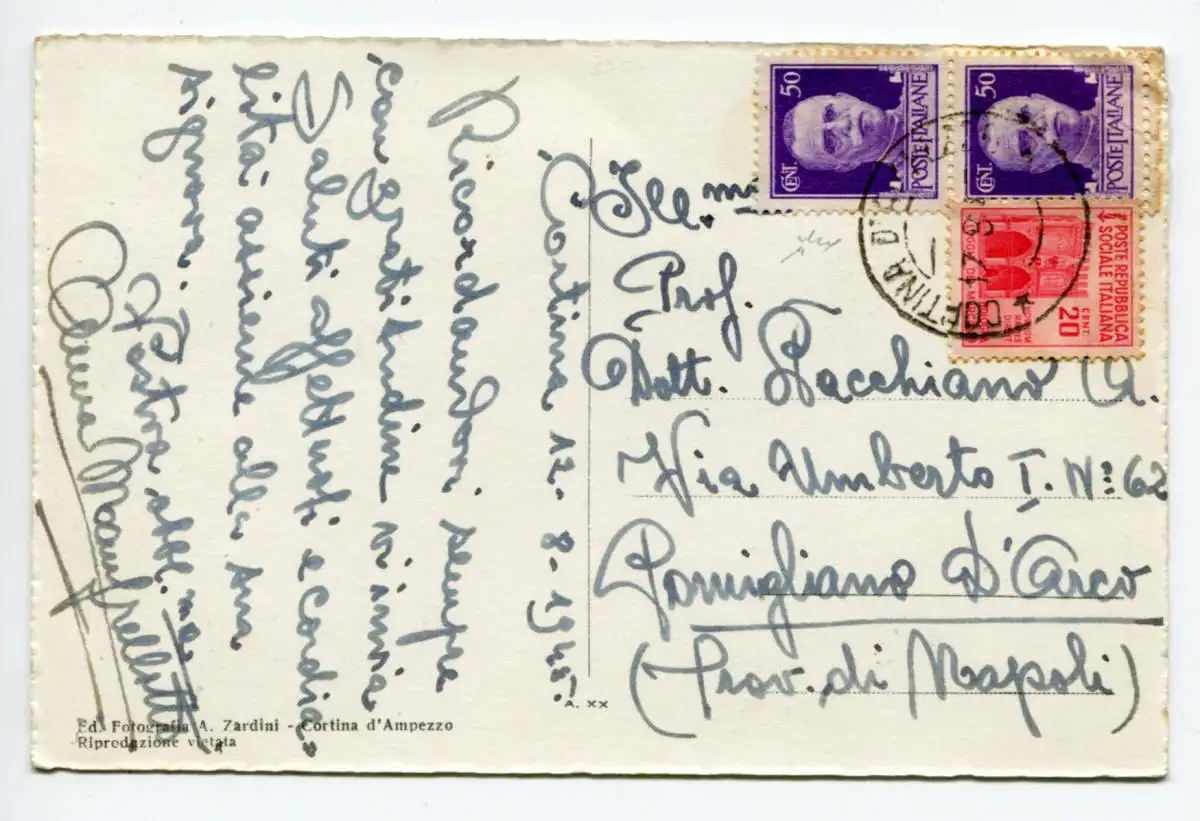 Cortina 12-8-1945.
Ricordandovi sempre
con gratitudine vi invia
Saluti affettuosi e cordia-
litá assieme alla sua
signora.
Vostra obbl.ma
Anna
Ill.mo
Prof.
Dott. Pacchiano A.
Via Umberto I. N° 62
Pomigliano D'Arco
(Prov. di Napoli)
50
CENT.
POSTE ITALIANE
50
CENT.
POSTE ITALIANE
POSTE REPUBBLICA
SOCIALE ITALIANA
CENT.
20
HOSTIUM
RABIES
DIRUIT
CORTINA D'
A. XX
Ed. Fotografia A. Zardini - Cortina d'Ampezzo
Riproduzione vietata